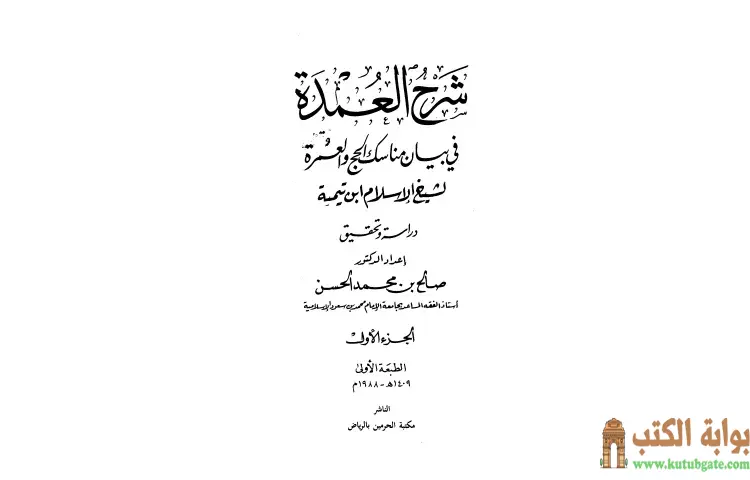 شرح العمدة
في بيان مناسك الحج والعمرة
لشيخ الإسلام ابن تيمية
دراسة وتحقيق
إعداد الدكتور
صالح بن محمد الحسن
أستاذ الفقه المساعد بجامعة الإمام محمد بن سعود الإسلامية
الجزء الأول
الطبعة الأولى
١٤٠٩هـ - ١٩٨٨م
الناشر
مكتبة الحرمين بالرياض
بوابة الكتب
www.kutubgate.com